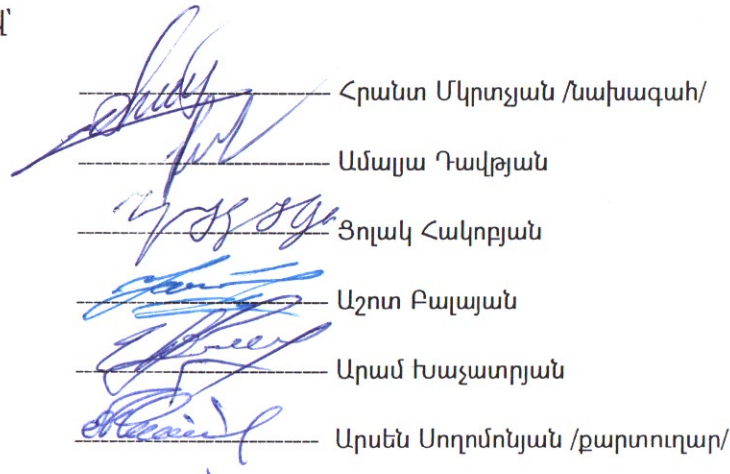 Հրանտ Մկրտչյան /նախագահ/
Ամալյա Դավթյան
Ցոլակ Հակոբյան
Աշոտ Բալայան
Արամ Խաչատրյան
Արսեն Սողոմոնյան /քարտուղար/